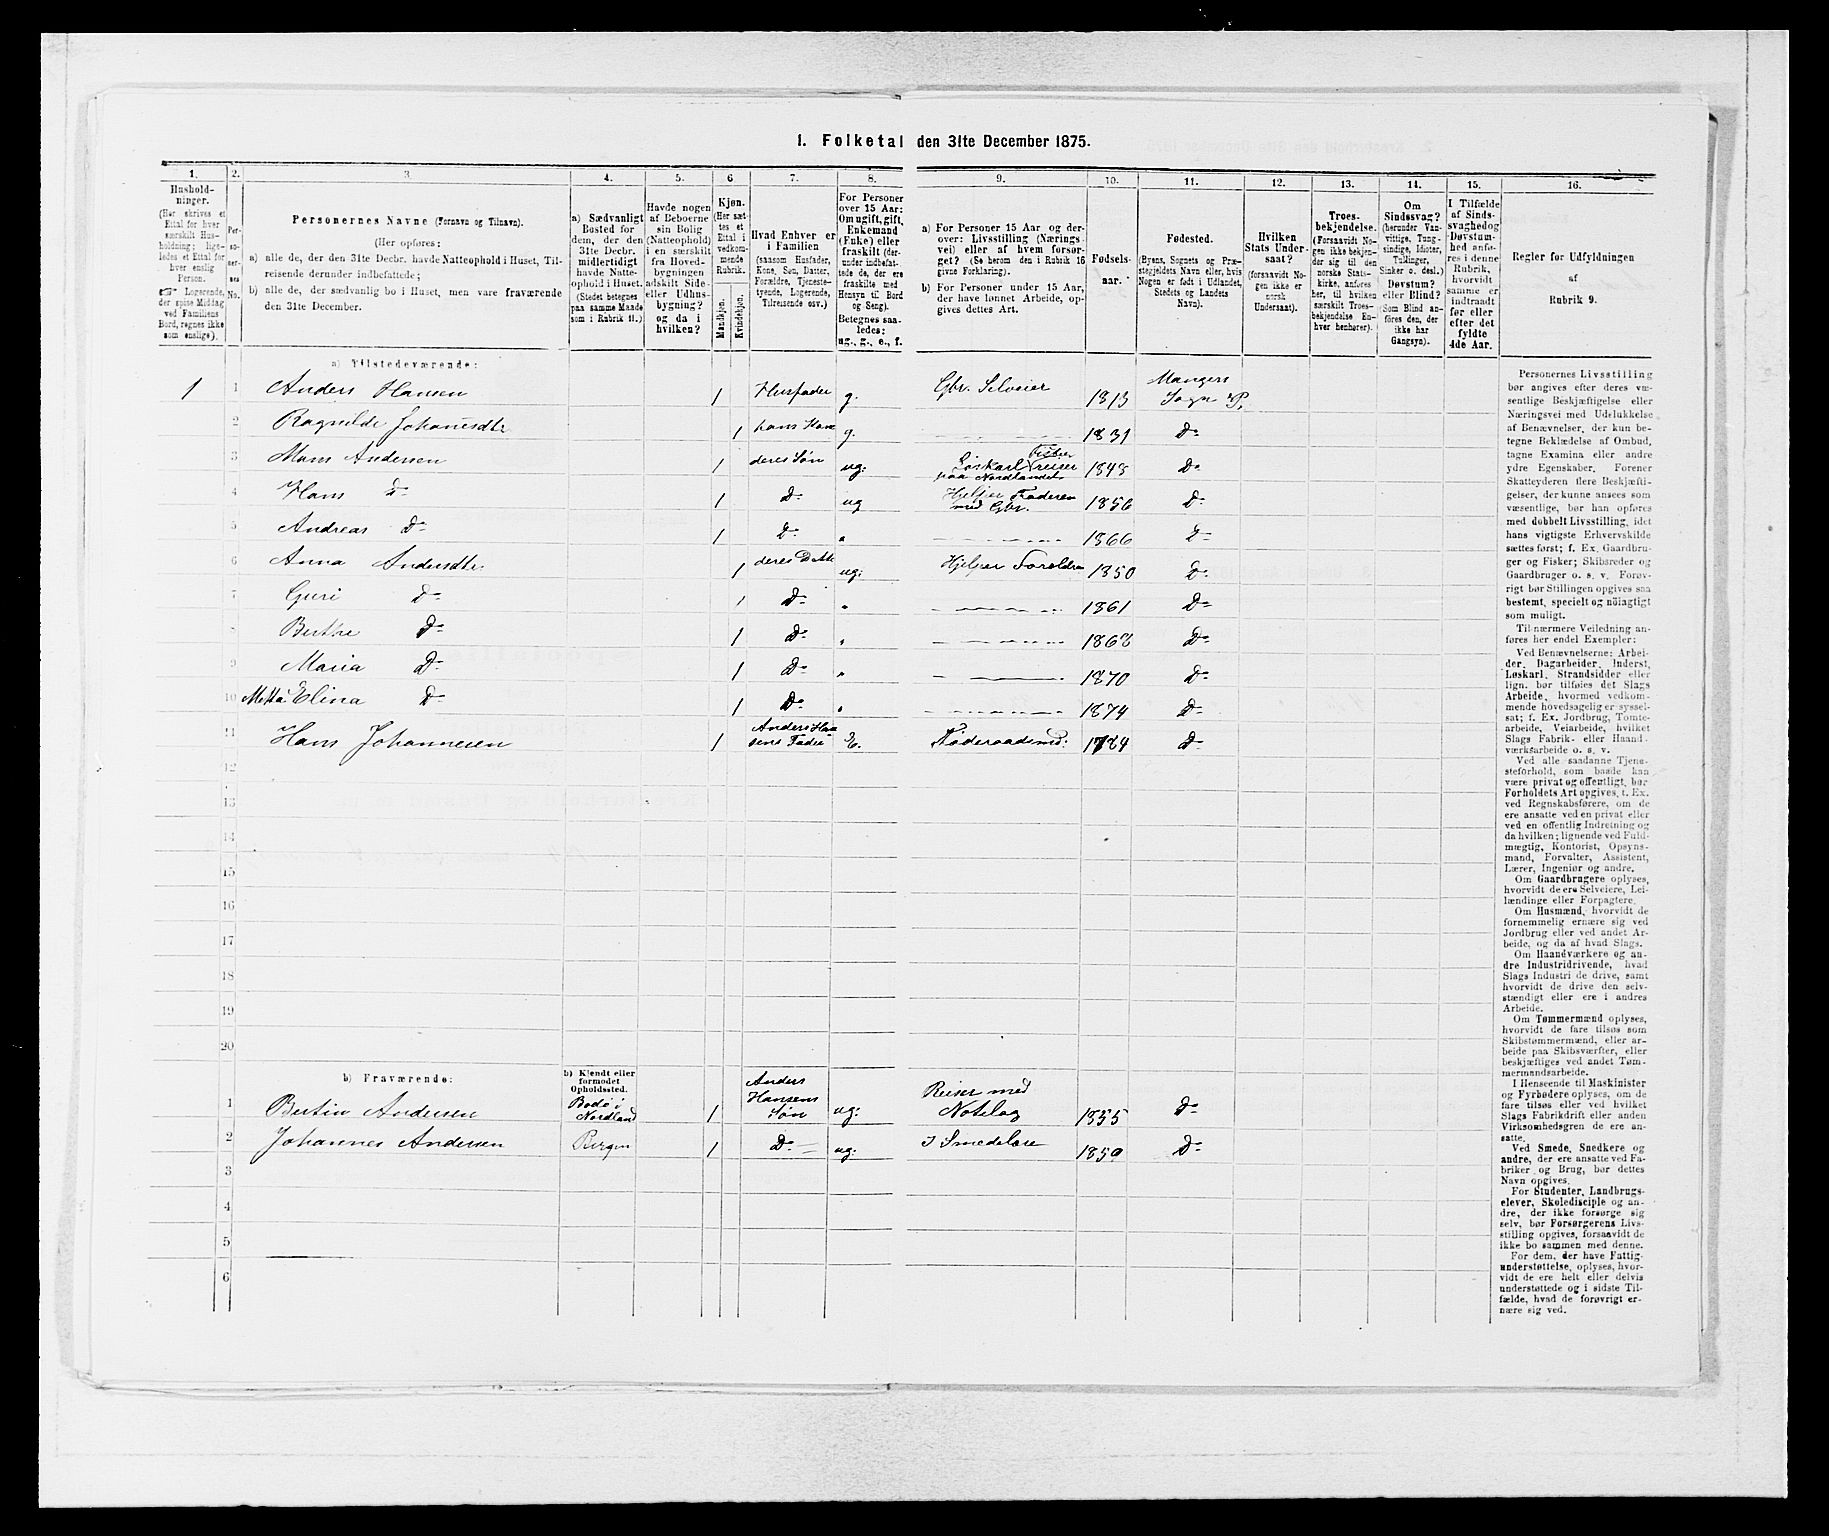 1. Folketal den 31te December 1875.
1. 2. 3. 4. 5. 6 7. 8. 9. 10. 11. 12. 13. 14. 15. 16.
Hushold-
ninger.
(Her skrives et
Ettal for hver
særskilt Hus-
holdning; lige-
ledes et Ettal for
hver enslig
Person.
☞ Logerende,
der spise Middag
ved Familiens
Bord, regnes ikke
som enslige).
Per-
so-
ner-
nes
No.
Personernes Navne (Fornavn og Tilnavn).
(Her opføres:
a) alle de, der den 31te Decbr. havde Natteophold i Huset, Til-
reisende derunder indbefattede;
b) alle de, der sædvanlig bo i Huset, men vare fraværende
den 31te December.
a) Sædvanligt
Bosted for
dem, der den
31te Decbr.
midlertidigt
havde Natte-
ophold i Huset.
(Stedet betegnes
paa samme Maade
som i Rubrik 11.)
Havde nogen
af Beboerne
sin Bolig
(Natteophold)
i en særskilt
fra Hoved-
bygningen
adskilt Side-
eller Udhus-
bygning?
og da i
hvilken?
Kjøn.
(Her sæt-
tes et
Ettal i
vedkom-
mende
Rubrik.
Mandkjøn.
Kvindekjøn.
Hvad Enhver er
i Familien
(saasom Husfader,
Kone, Søn, Datter,
Forældre, Tjeneste-
tyende, Logerende,
Tilreisende osv.)
For Personer
over 15 Aar:
Om ugift, gift,
Enkemand
(Enke) eller
fraskilt (der-
under indbefat-
tede de, der ere
fraskilte med
Hensyn til Bord
og Seng).
Betegnes saa-
ledes:
ug., g., e., f.
a) For Personer 15 Aar og der-
over: Livsstilling (Nærings-
vei) eller af hvem forsør-
get? (Se herom den i Rubrik 16
givne Forklaring).
b) For Personer under 15 Aar,
der have lønnet Arbeide, op-
gives dettes Art.
Fødsels-
aar.
Fødested.
(Byens, Sognets og Præ-
stegjeldets Navn eller, hvis
Nogen er født i Udlandet,
Stedets og Landets
Navn).
Hvilken
Stats Under-
saat?
(forsaavidt No-
gen ikke er
norsk
Undersaat).
Troes-
bekjendelse.
(Forsaavidt No-
gen ikke bekjen-
der sig til den
norske Stats-
kirke, anføres
her, til hvilken
særskilt Troes-
bekjendelse En-
hver henhører).
Om
Sindssvag?
(herunder Van-
vittige, Tung-
sindige, Idioter,
Tullinger,
Sinker o. desl.)
Døvstum?
eller Blind?
(Som Blind an-
føres den, der
ikke har
Gangsyn).
I Tilfælde
af Sinds-
svaghed og
Døvstum-
hed anfø-
res i denne
Rubrik,
hvorvidt
samme er
indtraadt
før eller
efter det
fyldte
4de Aar.
Regler for Udfyldningen
af
Rubrik 9.
a) Tilstedeværende:
1 1 Anders Hansen 1 Husfader g. Gbr. Selveier 1813 Mangers Sogn & P.
2 Ragnilde Johanesdtr 1 hans Kone g. 1831 Do
3 Mons Andersen 1 deres Søn ug. Løskarl Fisker reiser paa Nordlandet 1848 Do
4 Hans Do 1 Do ug Hjelper Faderen med Gbr. 1856 Do
5 Andreas Do 1 Do " 1866 Do
6 Anna Andersdtr 1 deres Datte ug. Hjelper Foreldre 1850 Do
7 Guri Do 1 Do " 1861 Do
8 Berthe Do 1 Do " 1868 Do
9 Maria Do 1 Do " 1870 Do
10 Metta Elina Do 1 Do " 1874 Do
11 Hans Johannesen 1 Anders Han sens Fader E. Føderaadsmd: 1784 Do
12
13
14
15
16
17
18
19
20
b) Fraværende:
b) Kjendt eller
formodet
Opholdssted.
1 Bertin Andersen Bodø i Nordland 1 Anders Hansens Søn ug. Reiser med Notelag 1855 Do
2 Johannes Andersen Bergen 1 Do ug. I Smedelære 1859 Do
3
4
5
6
Personernes Livsstilling
bør angives efter deres væ-
sentlige Beskjæftigelse eller
Næringsvei med Udelukkelse
af Benævnelser, der kun be-
tegne Beklædelse af Ombud,
tagne Examina eller andre
ydre Egenskaber. Forener
Skatteyderen flere Beskjæfti-
gelser, der kunne ansees som
væsentlige, bør han opføres
med dobbelt Livsstilling, idet
hans vigtigste Erhvervskilde
sættes først; f. Ex. Gaardbru-
ger og Fisker; Skibsreder og
Gaardbruger o. s. v. Forøv-
rigt bør Stillingen opgives saa
bestemt, specielt og nöiagtigt
som muligt.
Til nærmere Veiledning an-
føres her endel Exempler:
Ved Benævnelserne: Arbei-
der, Dagarbeider, Inderst,
Løskarl, Strandsidder eller
lign. bør tilføies det Slags
Arbeide, hvormed vedkom-
mende hovedsagelig er syssel-
sat; f. Ex. Jordbrug, Tomte-
arbeide, Veiarbeide, hvilket
Slags Fabrik- eller Haand-
værksarbeide o. s. v.
Ved alle saadanne Tjene-
steforhold, som baade kan
være privat og offentligt, bør
Forholdets Art opgives, f. Ex.
ved Regnskabsførere, om de
ere ansatte ved en privat eller
ved en offentlig Indretning og
da hvilken; lignende ved Fuld-
mægtig, Kontorist, Opsyns-
mand, Forvalter, Assistent,
Lærer, Ingeniør og andre.
Om Gaardbrugere oplyses,
hvorvidt de ere Selveiere, Lei-
lændinge eller Forpagtere.
Om Husmænd, hvorvidt de
fornemmelig ernære sig ved
Jordbrug eller ved andet Ar-
beide, og da af hvad Slags.
Om Haandværkere og an-
dre Industridrivende, hvad
Slags Industri de drive, samt
hvorvidt de drive den selv-
stændigt eller ere i andres
Arbeide.
Om Tømmermænd oplyses,
hvorvidt de fare tilsøs som
Skibstømmermænd, eller ar-
beide paa Skibsværfter, eller
beskjæftiges ved andet Tøm-
mermandsarbeide.
I Henseende til Maskinister
og Fyrbødere oplyses, om de
fare tilsøs eller ved hvilket
Slags Fabrikdrift eller anden
Virksomhedsgren de ere an-
satte.
Ved Smede, Snedkere og
andre, der ere ansatte ved Fa-
briker og Brug, bør dettes
Navn opgives.
For Studenter, Landbrugs-
elever, Skoledisciple og an-
dre, der ikke forsørge sig
selv, bør Forsørgerens Livs-
stilling opgives, forsaavidt de
ikke bo sammen med denne.
For dem, der have Fattig-
understøttelse, oplyses, hvor-
vidt de ere helt eller delvis
understøttede og i sidste Til-
fælde, hvad de forøvrigt er-
nære sig ved.